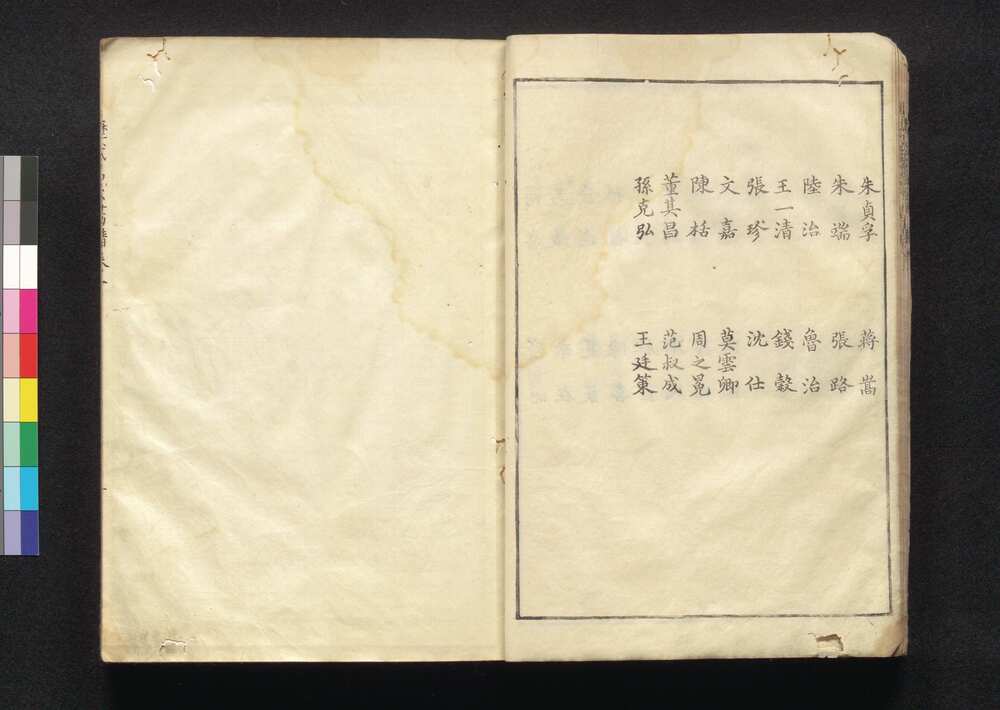 朱貞孚　蔣嵩
朱端　張路
陸治　魯治
王一清　錢穀
張珍　沈仕
文嘉　莫雲卿
陳栝　周之冕
董其昌　范叔成
孫克弘　王廷策